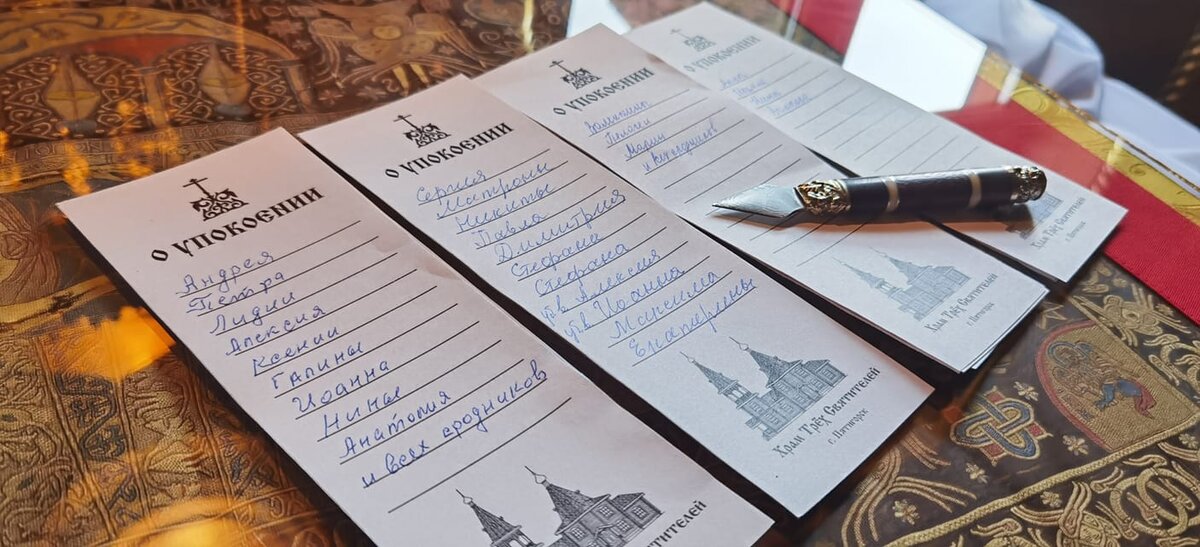 О УПОКОЕНИИ
Андрея
Петра
Лидии
Алексия
Ксении
Галины
Иоанна
Нины
Анатолия
и всех сродников
Святителей
О УПОКОЕНИИ
Сергия
Матроны
Никиты
Павла
Димитрия
Стефана
Стефана
Алексия
Иоанна
Максима
Екатерины
Храм Трёх Святителей
г. Пятигорск
О УПОКОЕНИИ
Пелагеи
Марии
и
Храм Трёх Святителей
г. Пятигорск
О УПОКОЕНИИ
Нины
Храм Трёх Святителей
г. Пятигорск